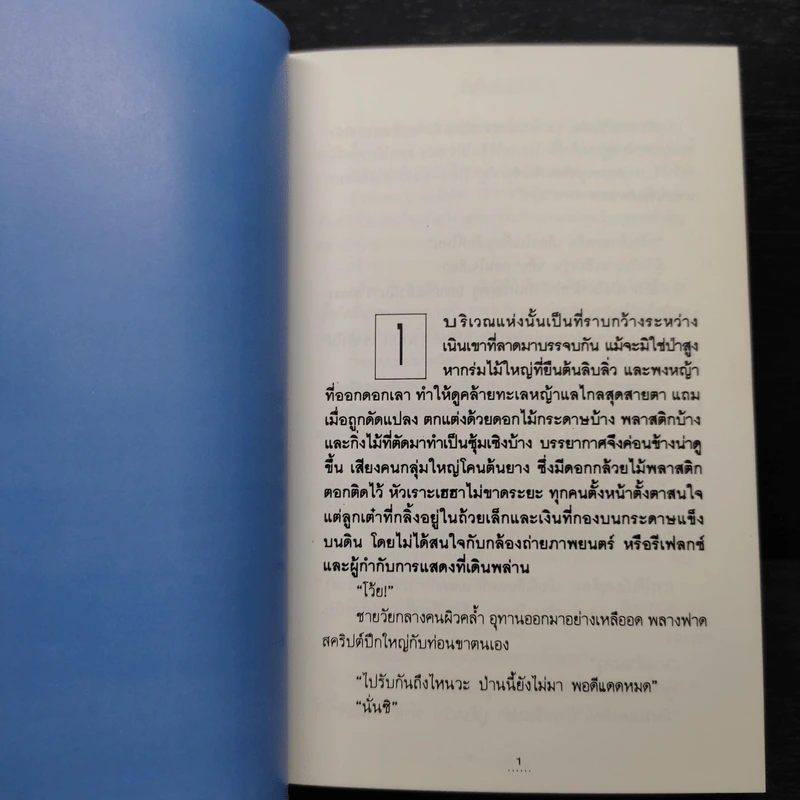 1
บริเวณแห่งนั้นเป็นที่ราบกว้างระหว่าง
เนินเขาที่ลาดมาบรรจบกัน แม้จะมิใช่ป่าสูง
หากร่มไม้ใหญ่ที่ยืนต้นลิบลิ่ว และพงหญ้า
ที่ออกดอกเลา ทำให้ดูคล้ายทะเลหญ้าแลไกลสุดสายตา แถม
เมื่อถูกดัดแปลง ตกแต่งด้วยดอกไม้กระดาษบ้าง พลาสติกบ้าง
และกิ่งไม้ที่ตัดมาทำเป็นซุ้มเซิงบ้าง บรรยากาศจึงค่อนข้างน่าดู
ขึ้น เสียงคนกลุ่มใหญ่โคนต้นยาง ซึ่งมีดอกกล้วยไม้พลาสติก
ตอกติดไว้ หัวเราะเฮฮาไม่ขาดระยะ ทุกคนตั้งหน้าตั้งตาสนใจ
แต่ลูกเต๋าที่กลิ้งอยู่ในถ้วยเล็กและเงินที่กองบนกระดาษแข็ง
บนดิน โดยไม่ได้สนใจกับกล้องถ่ายภาพยนตร์ หรือรีเฟลกซ์
และผู้กำกับการแสดงที่เดินพล่าน
“โว้ย!”
ชายวัยกลางคนผิวคล้ำ อุทานออกมาอย่างเหลืออด พลางฟาด
สคริปต์ปึกใหญ่กับท่อนขาตนเอง
“ไปรับกันถึงไหนวะ ป่านนี้ยังไม่มา พอดีแดดหมด”
“นั่นซิ”
1